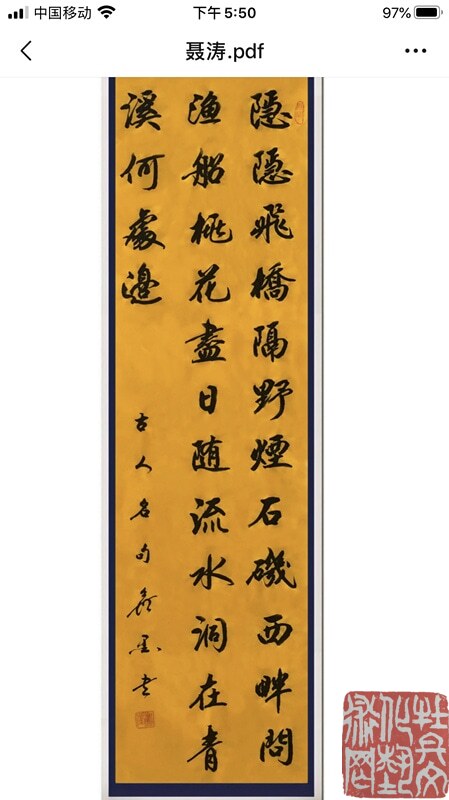 中国移动 下午5:50 97%
聂涛.pdf
隱隱飛橋隔野煙石磯西畔問
漁船桃花盡日随流水洞在青
溪何處邊
古人名句 墨书